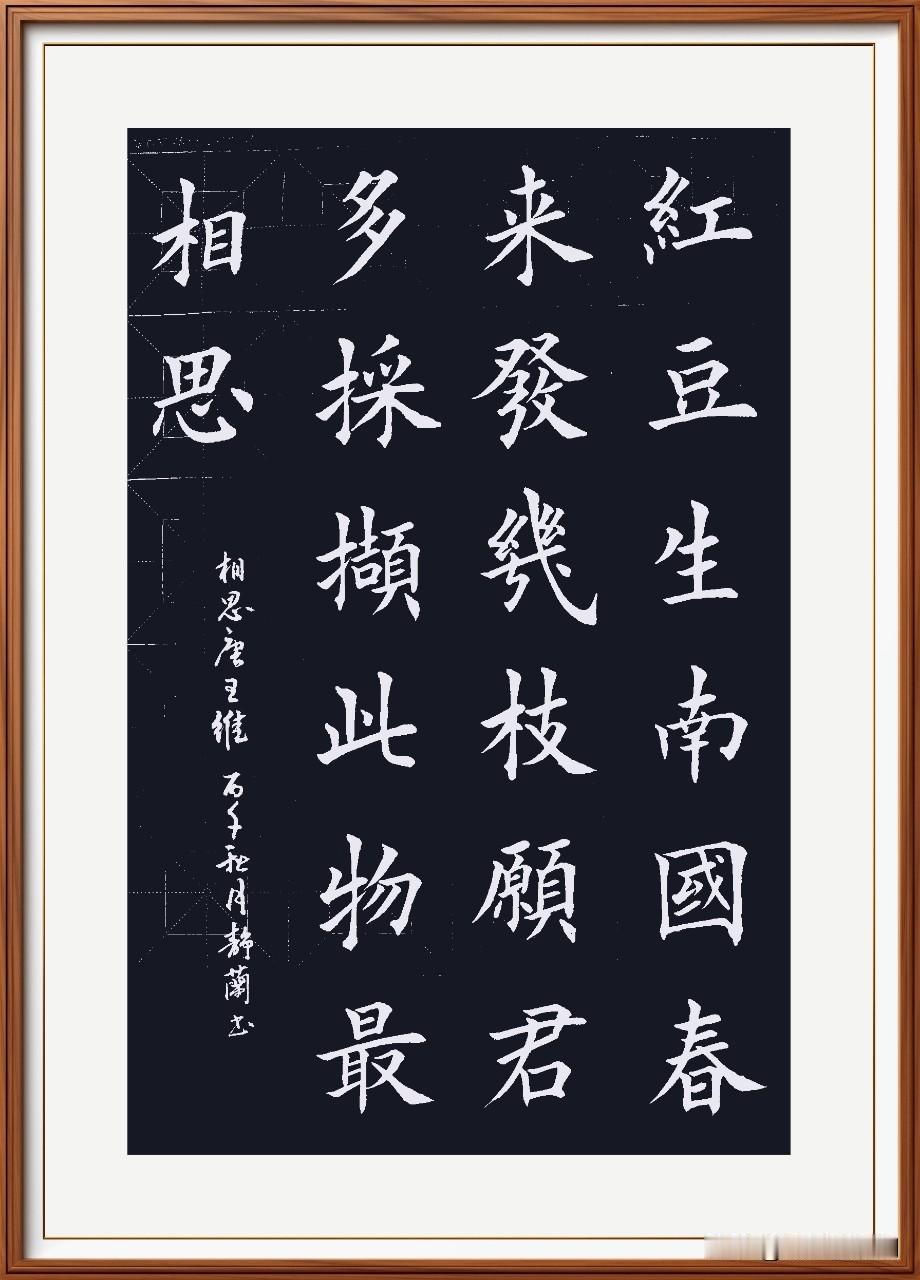 紅豆生南國春
来發幾枝願君
多採擷此物最
相思
相思唐王維 丙午秋月靜蘭书